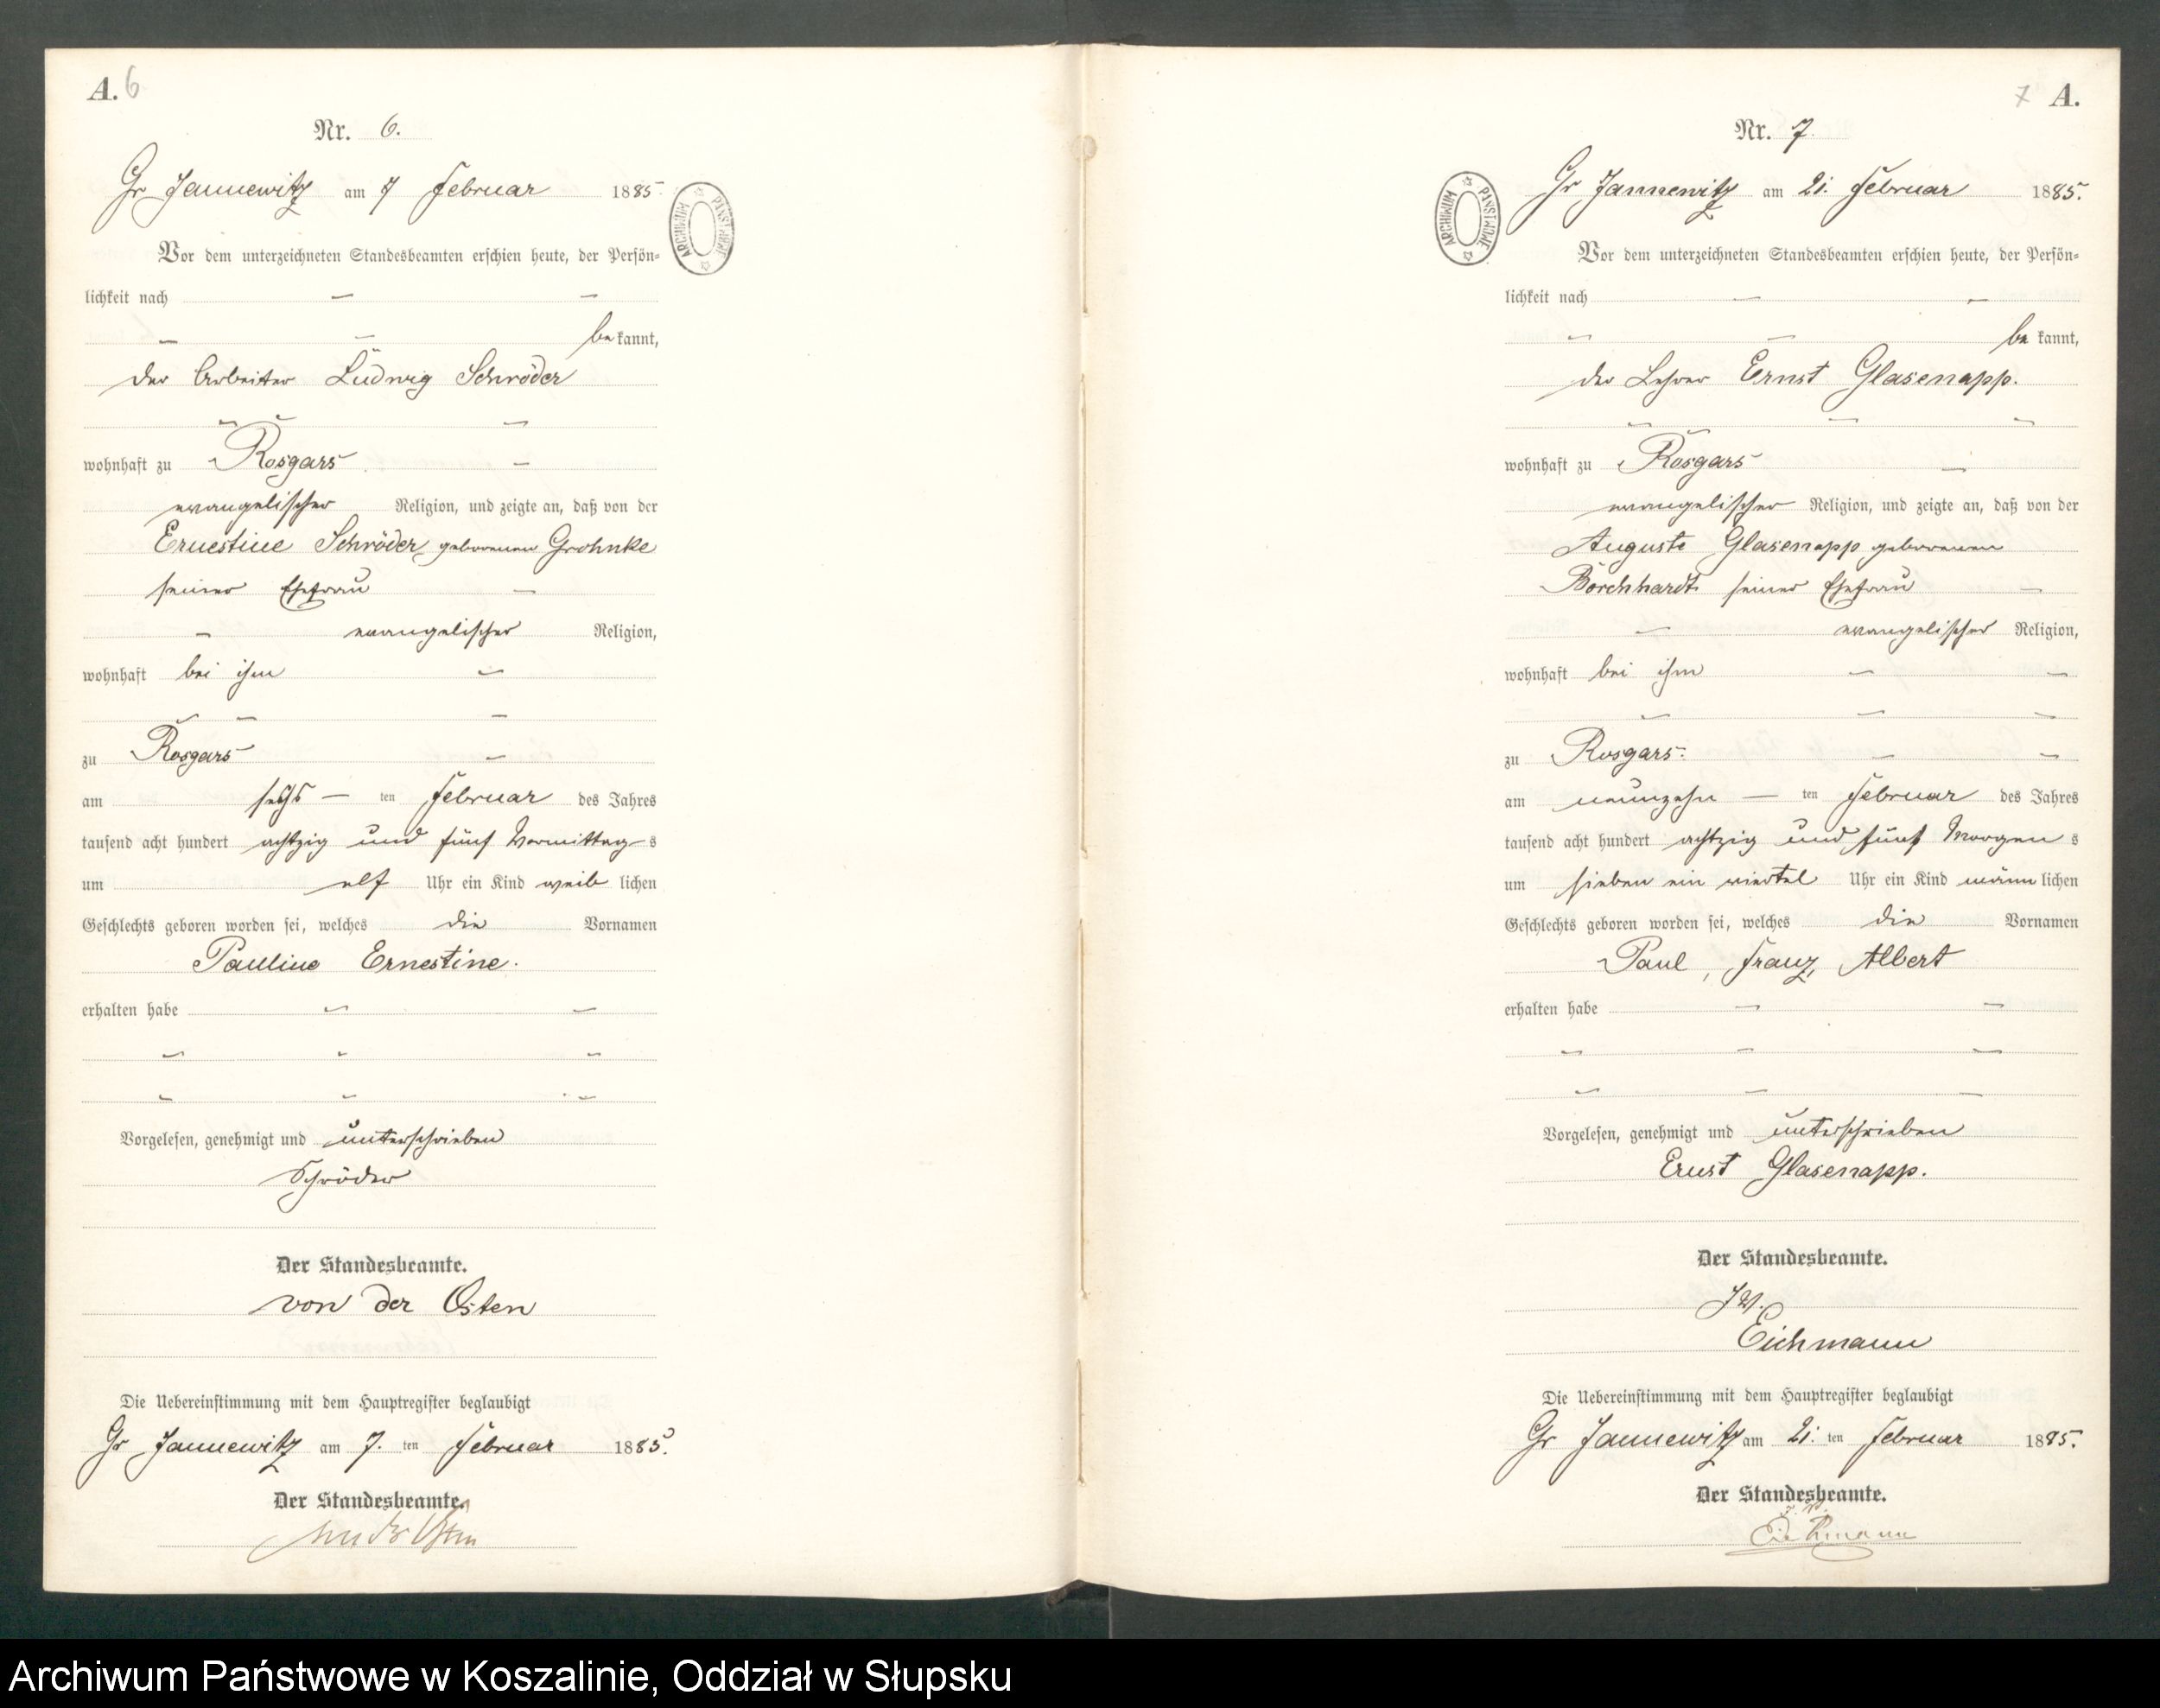 A. 6
Nr. 6.
Gr Jannewitz am 7 Februar 1885
Vor dem unterzeichneten Standesbeamten erschien heute, der Persön-
lichkeit nach — —
— — be kannt,
der Arbeiter Ludwig Schröder
— — —
wohnhaft zu Rosgars —
evangelischer Religion, und zeigte an, daß von der
Ernestine Schröder geborenen Grohnke
seiner Ehefrau —
— evangelischer Religion,
wohnhaft bei ihm —
— — —
zu Rosgars —
am sechs — ten Februar des Jahres
tausend acht hundert achtzig und fünf Vormittag s
um elf Uhr ein Kind weib lichen
Geschlechts geboren worden sei, welches die Vornamen
Pauline Ernestine.
erhalten habe — —
— — —
— — —
Vorgelesen, genehmigt und unterschrieben
Schröder
Der Standesbeamte.
von der Osten
Die Uebereinstimmung mit dem Hauptregister beglaubigt
Gr Jannewitz am 7. ten Februar 1885.
Der Standesbeamte.
von der Osten
ARCHIWUM PAŃSTWOWE
7 A.
Nr. 7
Gr Jannewitz am 21. Februar 1885.
Vor dem unterzeichneten Standesbeamten erschien heute, der Persön-
lichkeit nach — —
— — be kannt,
der Lehrer Ernst Glasenapp.
— — — —
wohnhaft zu Rosgars —
evangelischer Religion, und zeigte an, daß von der
Auguste Glasenapp geborenen
Borchhardt seiner Ehefrau —
— evangelischer Religion,
wohnhaft bei ihm — —
— — —
zu Rosgars. — —
am neunzehn — ten Februar des Jahres
tausend acht hundert achtzig und fünf Morgen s
um sieben ein viertel Uhr ein Kind männ lichen
Geschlechts geboren worden sei, welches die Vornamen
Paul, Franz, Albert
erhalten habe — —
— — —
— — —
Vorgelesen, genehmigt und unterschrieben
Ernst Glasenapp.
Der Standesbeamte.
J. V.
Eichmann
Die Uebereinstimmung mit dem Hauptregister beglaubigt
Gr Jannewitz am 21. ten Februar 1885.
Der Standesbeamte.
J. V.
Eichmann
ARCHIWUM PAŃSTWOWE
Archiwum Państwowe w Koszalinie, Oddział w Słupsku